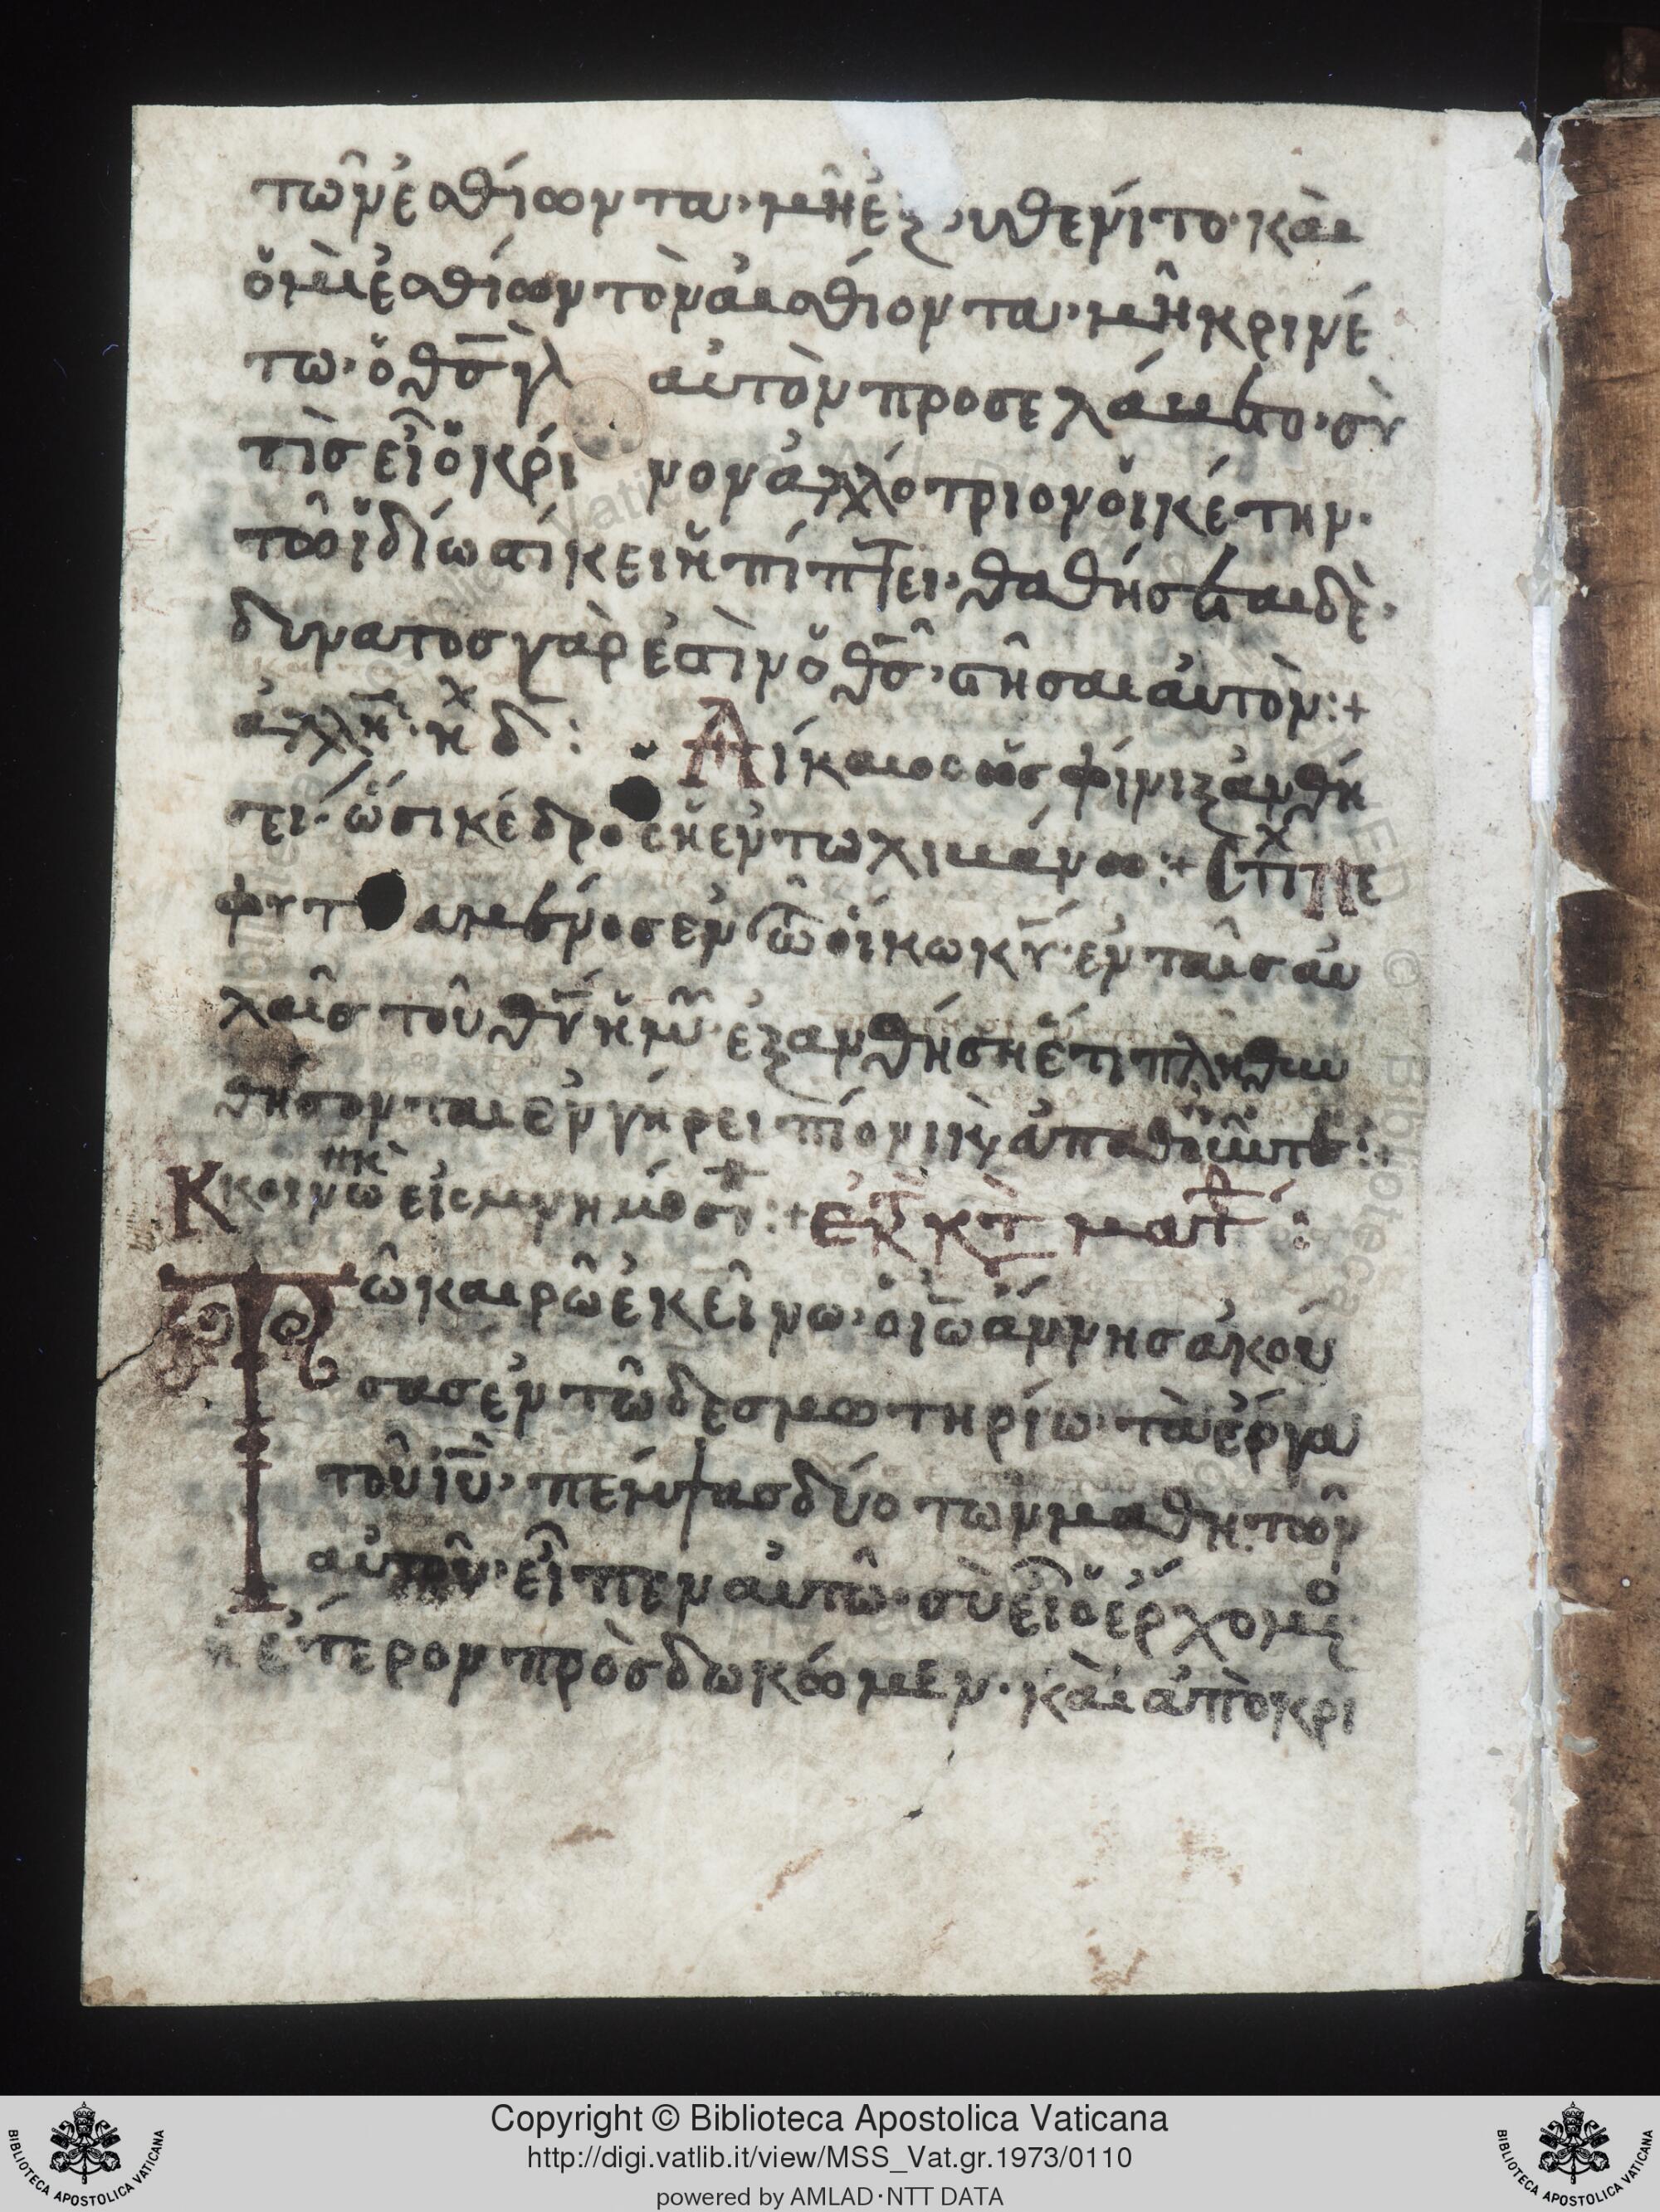 τῶν ἐσθίωντα· μὴ ἐξουθενίτο· καὶ
ὅ μὶ ἐσθίων τὸν αἰσθίοντα· μὴ κρινέ
τω· ὅ θς̅ γὰρ αὐτὸν προσελάμβτο· σὺ
τὶσ εἶ ὅ κρίνον ἀλλότριον ὅικέτην·
τὸ ϊδίω στίκει ἢ πίπτει· σταθήσεται δὲ·
δυνατοσ γὰρ ἐστὶν ὅ θς̅· στῆσαι αὐτὸν:+
ἀλλη· ἠχ δ̅: Δίκαιοσ ὡσ φίνιξ ἀνθή
σει· ὥσι κέδροσ ἡ ἐν τω λιβάνω:+ στιχ Πε
φυτ αμένοσ ἐν τῶ οἴκω κυ̅· ἐν ταῖσ αὐ
λαῖσ τοῦ θυ̅ ἡμῶν· ἐξανθήση ἔτι πληθυν
θήσονται ἐν γήρει πίονι κ(αὶ)
Κκοινω εἰσ μνημόσυ:+ ἐκ τ κτ ματθ:
Τῶ καιρῶ ἐκείνω· ὅ ϊωάννησ ἀκού
σασ ἐν τῶ δεσμωτηρίω· τὰ ἐργα
τοῦ ιυ̅· πέμψασ δύο τῶν μαθητῶν
αὐτοῦ· εἶπεν αὐτῶ· σὺ εἶ ὅ ἐρχομο
ἢ ἑτερον πρὸσδωκῶμεν· καὶ ἀπὸκρι
Copyright © Biblioteca Apostolica Vaticana
http://digi.vatlib.it/view/MSS_Vat.gr.1973/0110
powered by AMLAD·NTT DATA
BIBLIOTECA APOSTOLICA VATICANA
BIBLIOTECA APOSTOLICA VATICANA